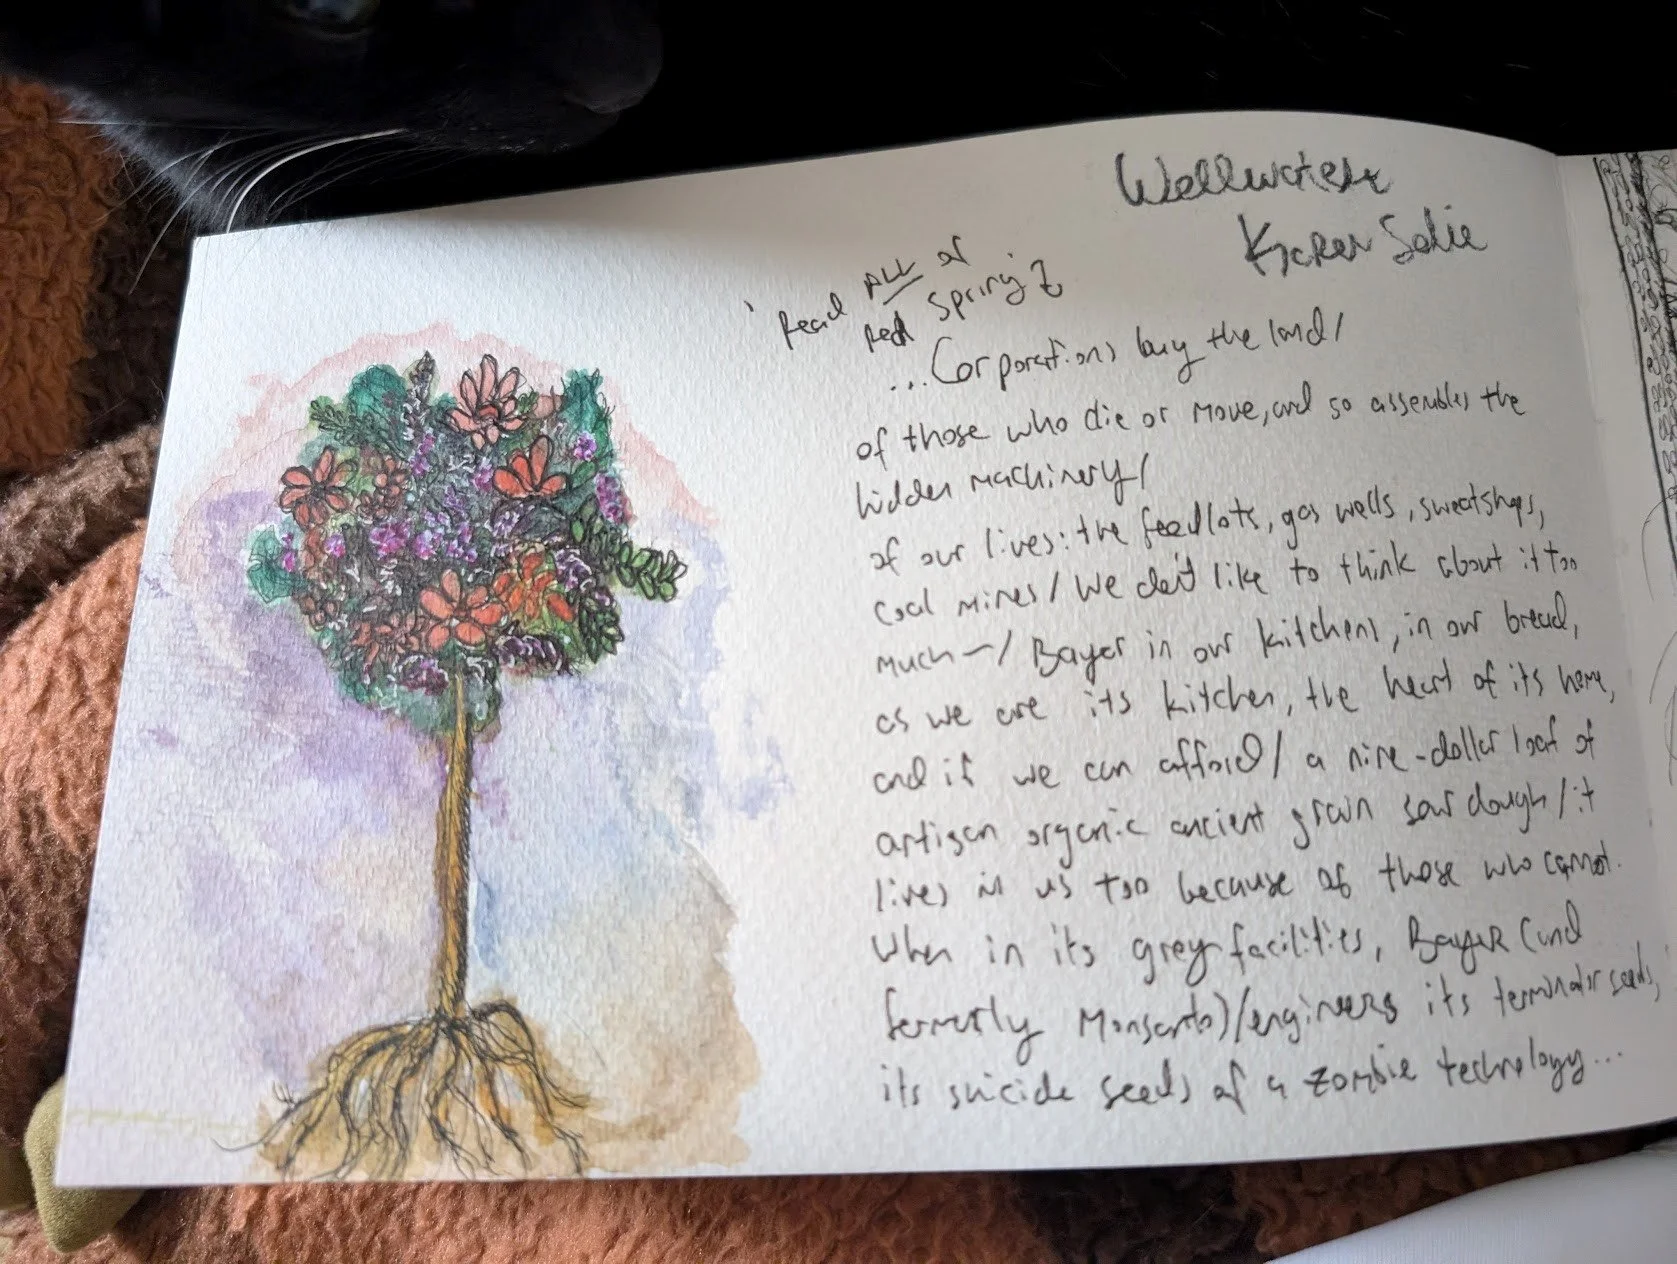 Wellwater
Karen Solie
'Read ALL of
Red Spring'
...Corporations buy the land/
of those who die or move, and so assembles the
hidden machinery/
of our lives: the feedlots, gas wells, sweatshops,
coal mines/ We don't like to think about it too
much—/ Bayer in our kitchens, in our bread,
as we are its kitchen, the heart of its home,
and if we can afford/ a nine-dollar loaf of
artisan organic ancient grain sour dough/ it
lives in us too because of those who cannot.
When in its grey facilities, Bayer (and
formerly Monsanto)/engineers its terminator seeds,
its suicide seeds of a zombie technology...